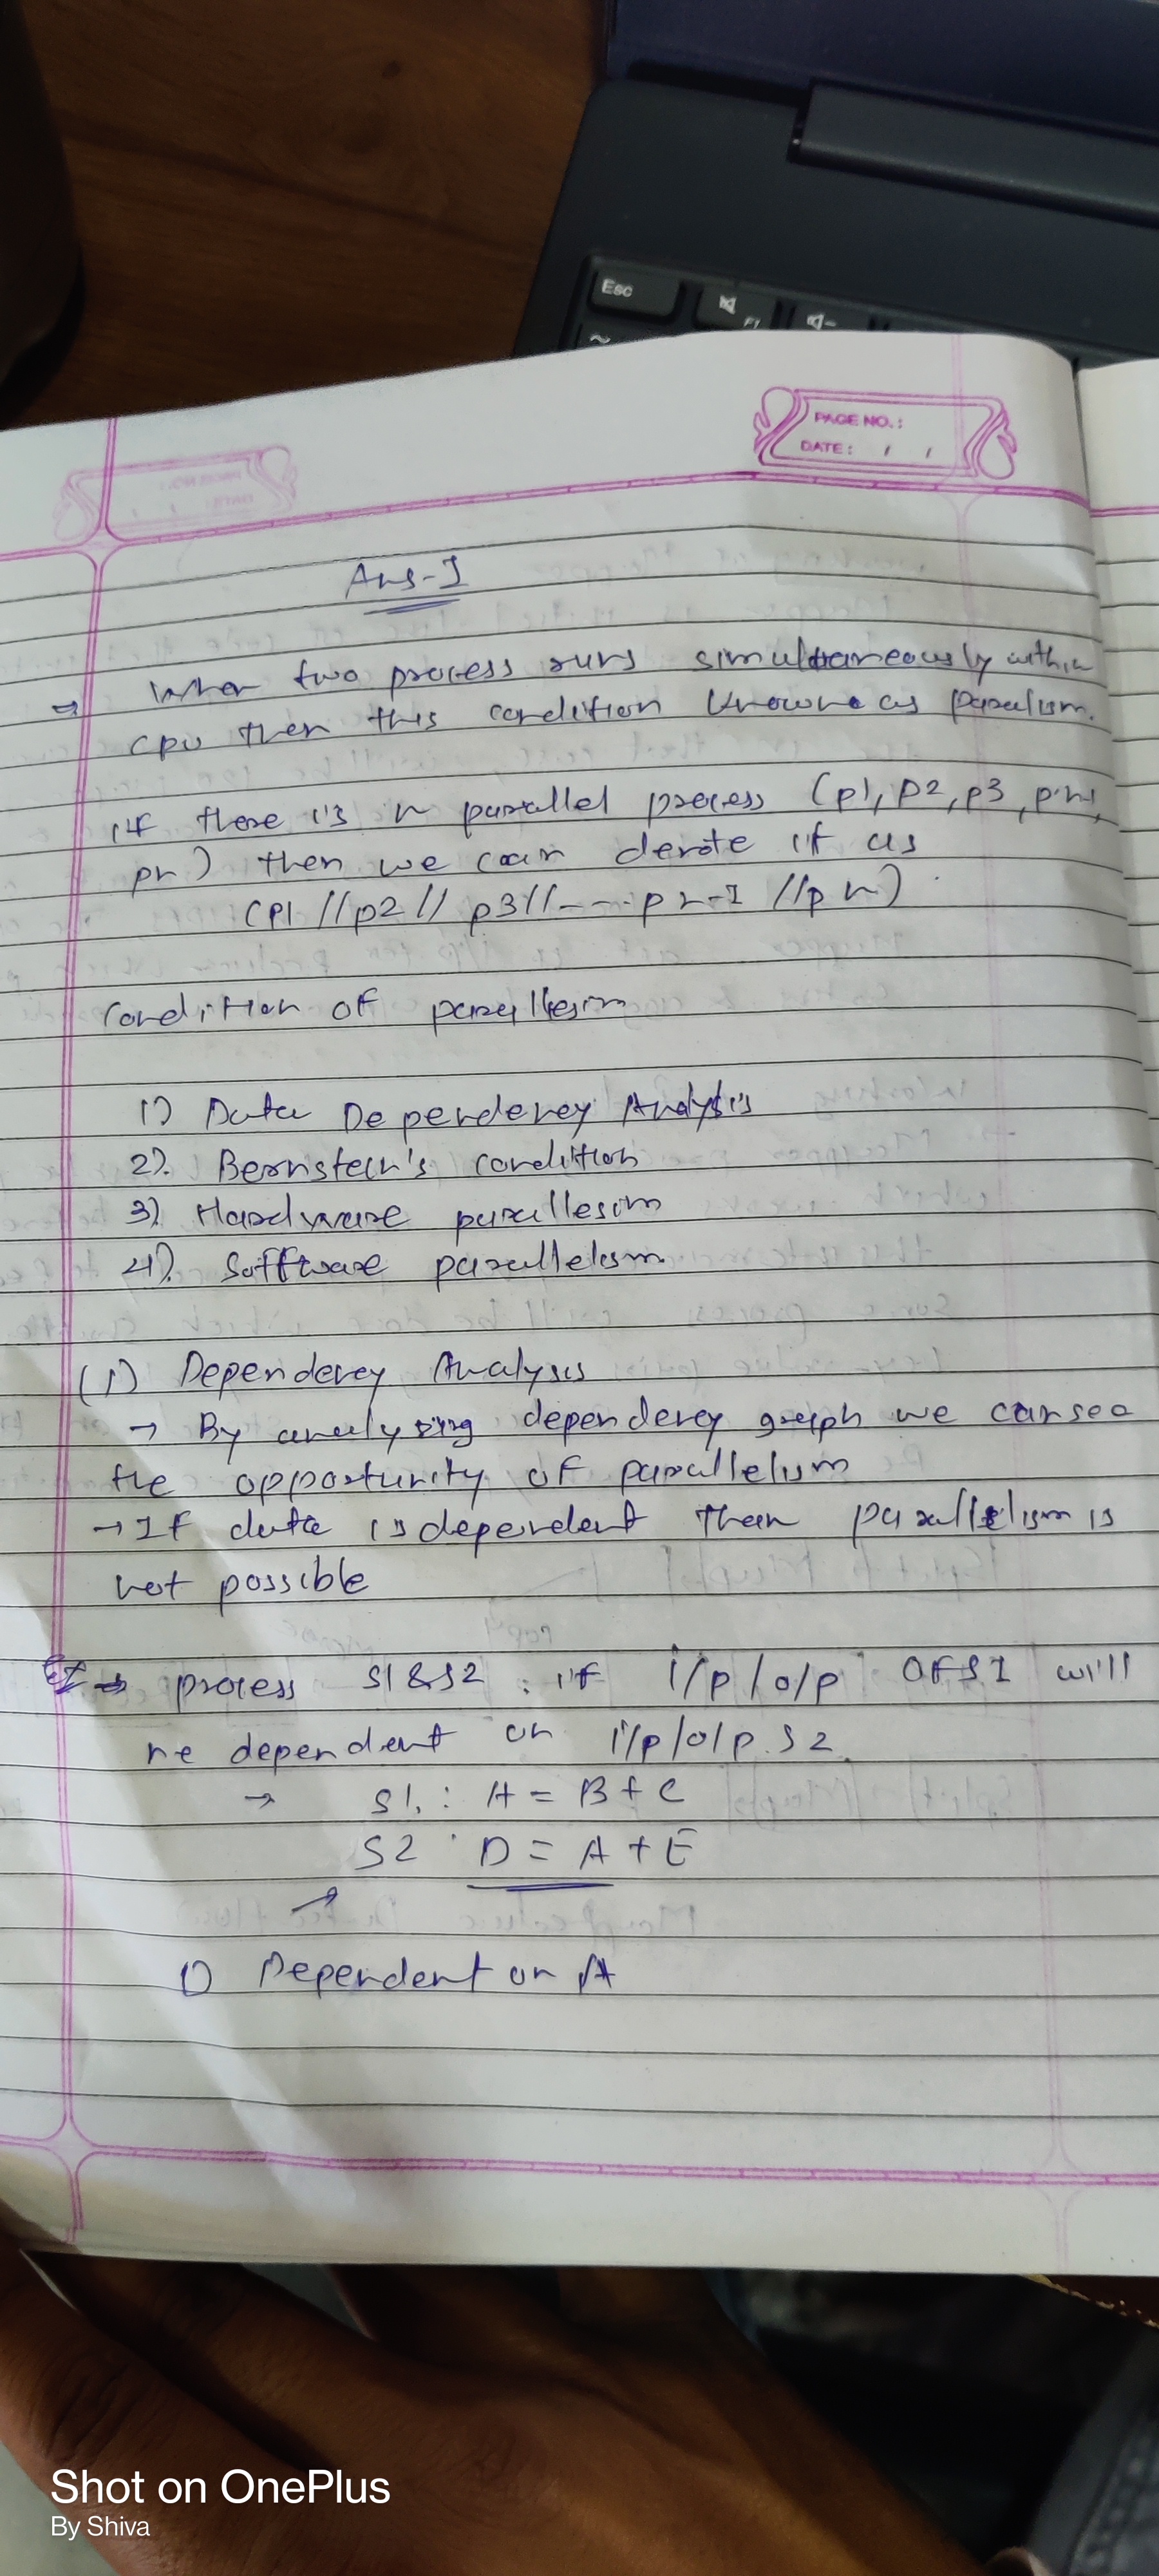 Esc
F1
PAGE NO.:
DATE: / /
Ans-I
→ When two process runs simultaneously within
CPU then this condition known as paralism.
if there is n parallel process (p1, p2, p3, pn-1,
pn) then we can denote it as
(P1 // p2 // p3 // ---- pn-1 // pn)
condition of parallesim
1) Data Dependency Analysis
2). Bernstein's condition
3) Hardware parallesim
4). Software parallelism
(1) Dependency Analysis
→ By analysing dependency graph we can see
the opportunity of parallelism
→ If data is dependent then parallelism is
not possible
Ex → process S1 & S2 : if i/p / o/p OF S1 will
be dependent on i/p / o/p S2.
→ S1. : A = B + C
S2 : D = A + E
1) Dependent on A
Shot on OnePlus
By Shiva